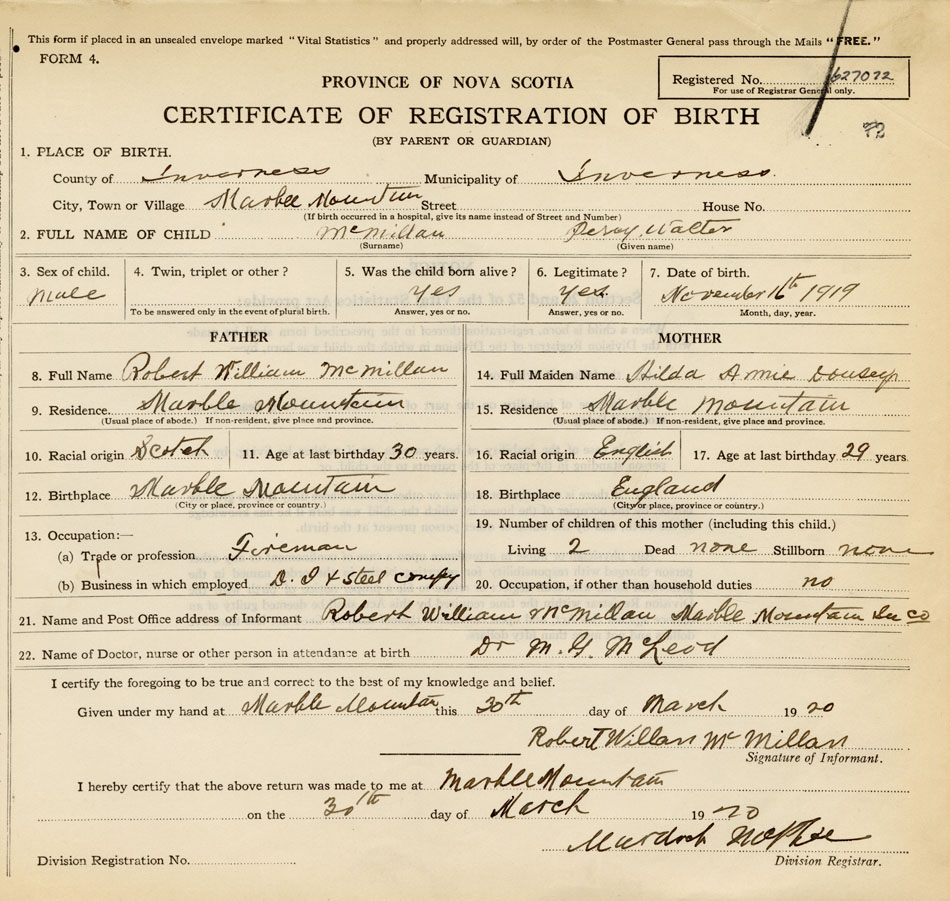 This form if placed in an unsealed envelope marked "Vital Statistics" and properly addressed will, by order of the Postmaster General pass through the Mails "FREE."
FORM 4.
Registered No. 627072
For use of Registrar General only.
PROVINCE OF NOVA SCOTIA
CERTIFICATE OF REGISTRATION OF BIRTH
(BY PARENT OR GUARDIAN)
1. PLACE OF BIRTH.
County of Inverness Municipality of Inverness
City, Town or Village Marble Mountain Street House No.
(If birth occurred in a hospital, give its name instead of Street and Number)
2. FULL NAME OF CHILD McMillan Percy Walter
(Surname) (Given name)
3. Sex of child. 4. Twin, triplet or other? 5. Was the child born alive? 6. Legitimate? 7. Date of birth.
Male Yes Yes November 16th 1919
To be answered only in the event of plural birth. Answer, yes or no. Answer, yes or no. Month, day, year.
FATHER MOTHER
8. Full Name Robert William McMillan 14. Full Maiden Name Hilda Annie
9. Residence. Marble Mountain 15. Residence Marble Mountain
(Usual place of abode.) If non-resident, give place and province. (Usual place of abode.) If non-resident, give place and province.
10. Racial origin Scotch 11. Age at last birthday 30 years. 16. Racial origin English 17. Age at last birthday 29 years
12. Birthplace Marble Mountain 18. Birthplace England
(City or place, province or country.) (City or place, province or country.)
13. Occupation:— 19. Number of children of this mother (including this child.)
(a) Trade or profession Fireman Living 2 Dead none Stillborn none
(b) Business in which employed D. I & Steel compy 20. Occupation, if other than household duties no
21. Name and Post Office address of Informant Robert William McMillan Marble Mountain In Co
22. Name of Doctor, nurse or other person in attendance at birth Dr M. G. McLeod
I certify the foregoing to be true and correct to the best of my knowledge and belief.
Given under my hand at Marble Mountain this 30th day of March 1920
Robert Willan McMillan
Signature of Informant.
I hereby certify that the above return was made to me at Marble Mountain
on the 30th day of March 1920
Murdoch McPhee
Division Registration No. Division Registrar.